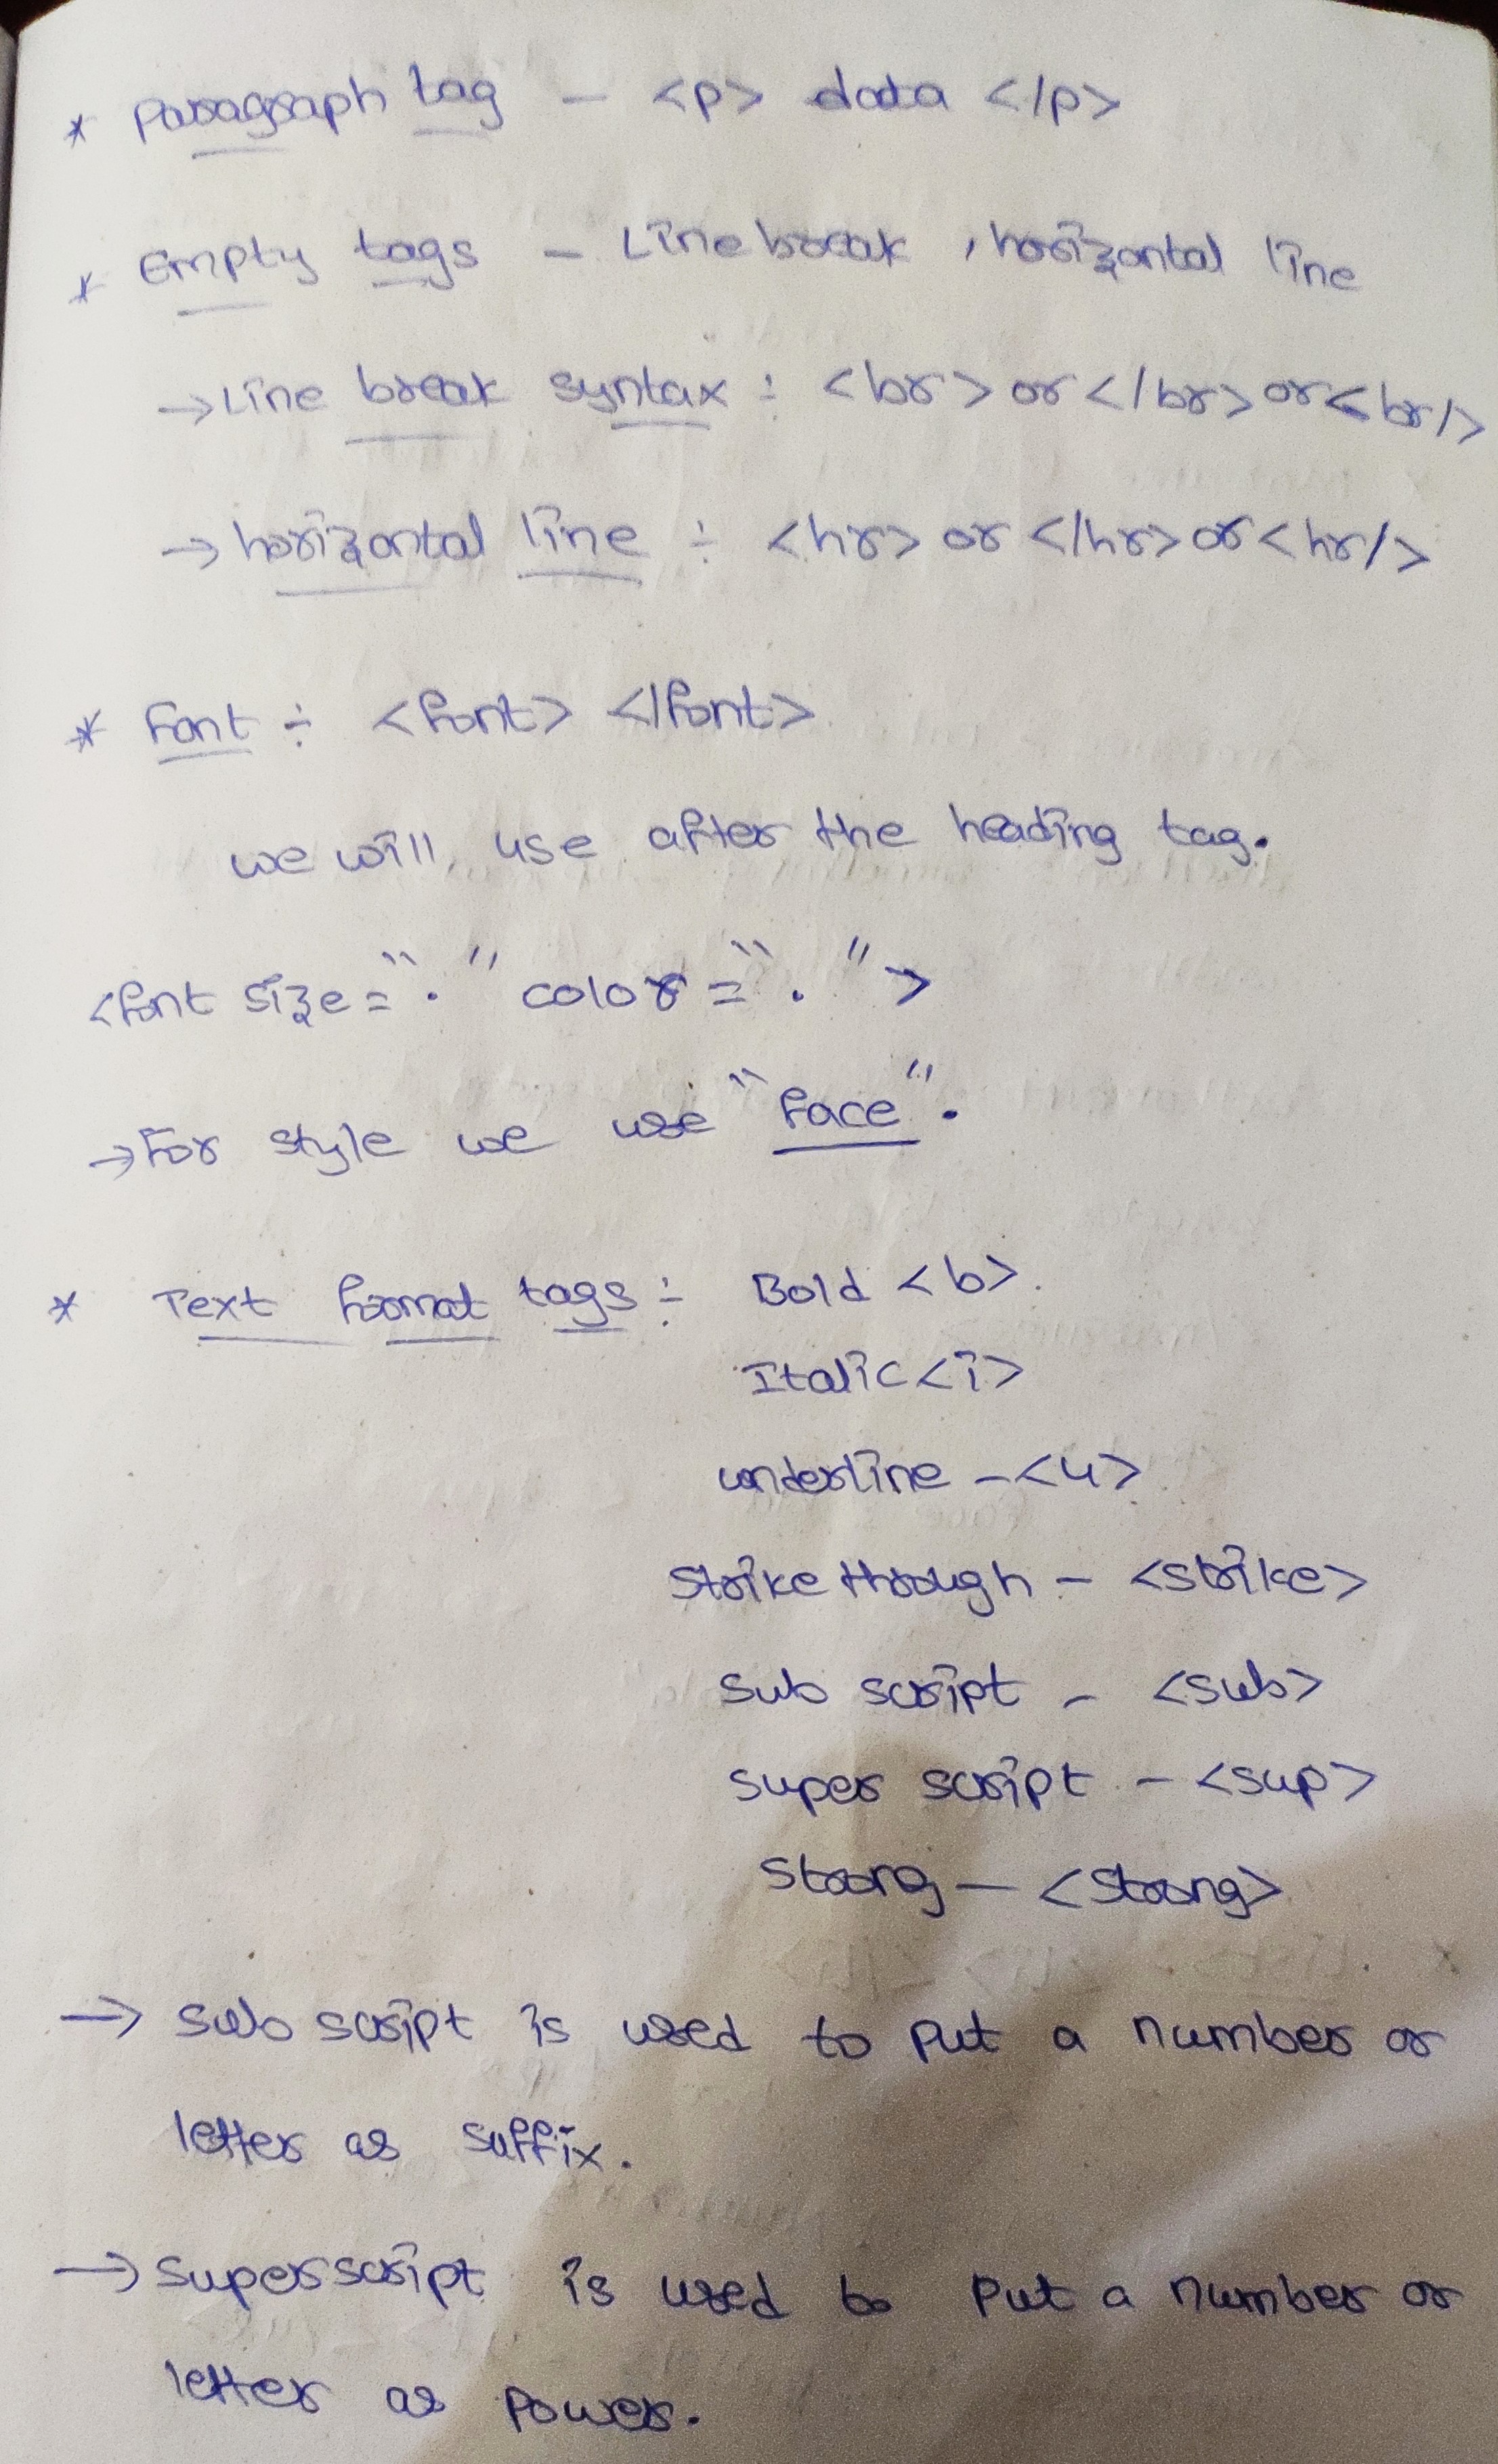 * Paragraph tag - <p> data </p>
* Empty tags - Line break , horizontal line
→ Line break syntax : <br> or </br> or <br/>
→ horizontal line : <hr> or </hr> or <hr/>
* Font : <font> </font>
we will use after the heading tag.
<font size = "." color = "." >
→ For style we use "face".
* Text format tags : Bold <b>.
Italic <i>
underline - <u>
Strike through - <strike>
Sub script - <sub>
super script - <sup>
Strong - <strong>
→ Sub script is used to put a number or
letter as suffix.
→ Superscript is used to put a number or
letter as power.